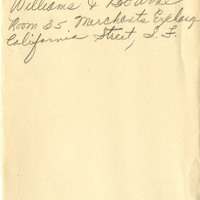 Williams &
Room 35 Merchants Exchang
California Street, S. F.